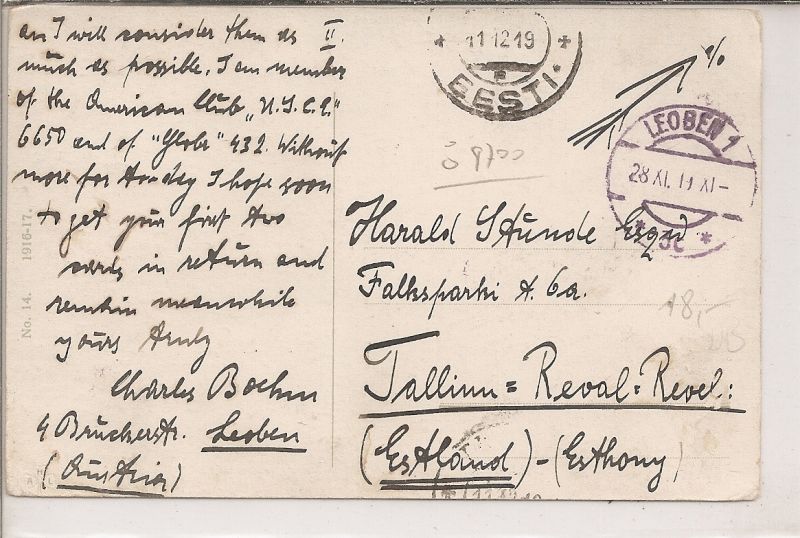 as I will consider them as II.
much as possible. I am member
of the American Club "U.S.C.C."
6650 and of "Globe" 432. Without
more for to-day I hope soon
to get your first two
cards in return and
remain meanwhile
yours truly
Charles Boehm
4 Bruckerstr. Leoben
(Austria)
No. 14. 1916-17.
11 12 19
EESTI
%
LEOBEN 1
28 XI. 19 XI-
* 3c *
8700
Harald Stunde Esqu.
Falksparki t. 6a.
18,-
Tallinn = Reval = Revel:
(Estland) - (Esthony)
11 12 19